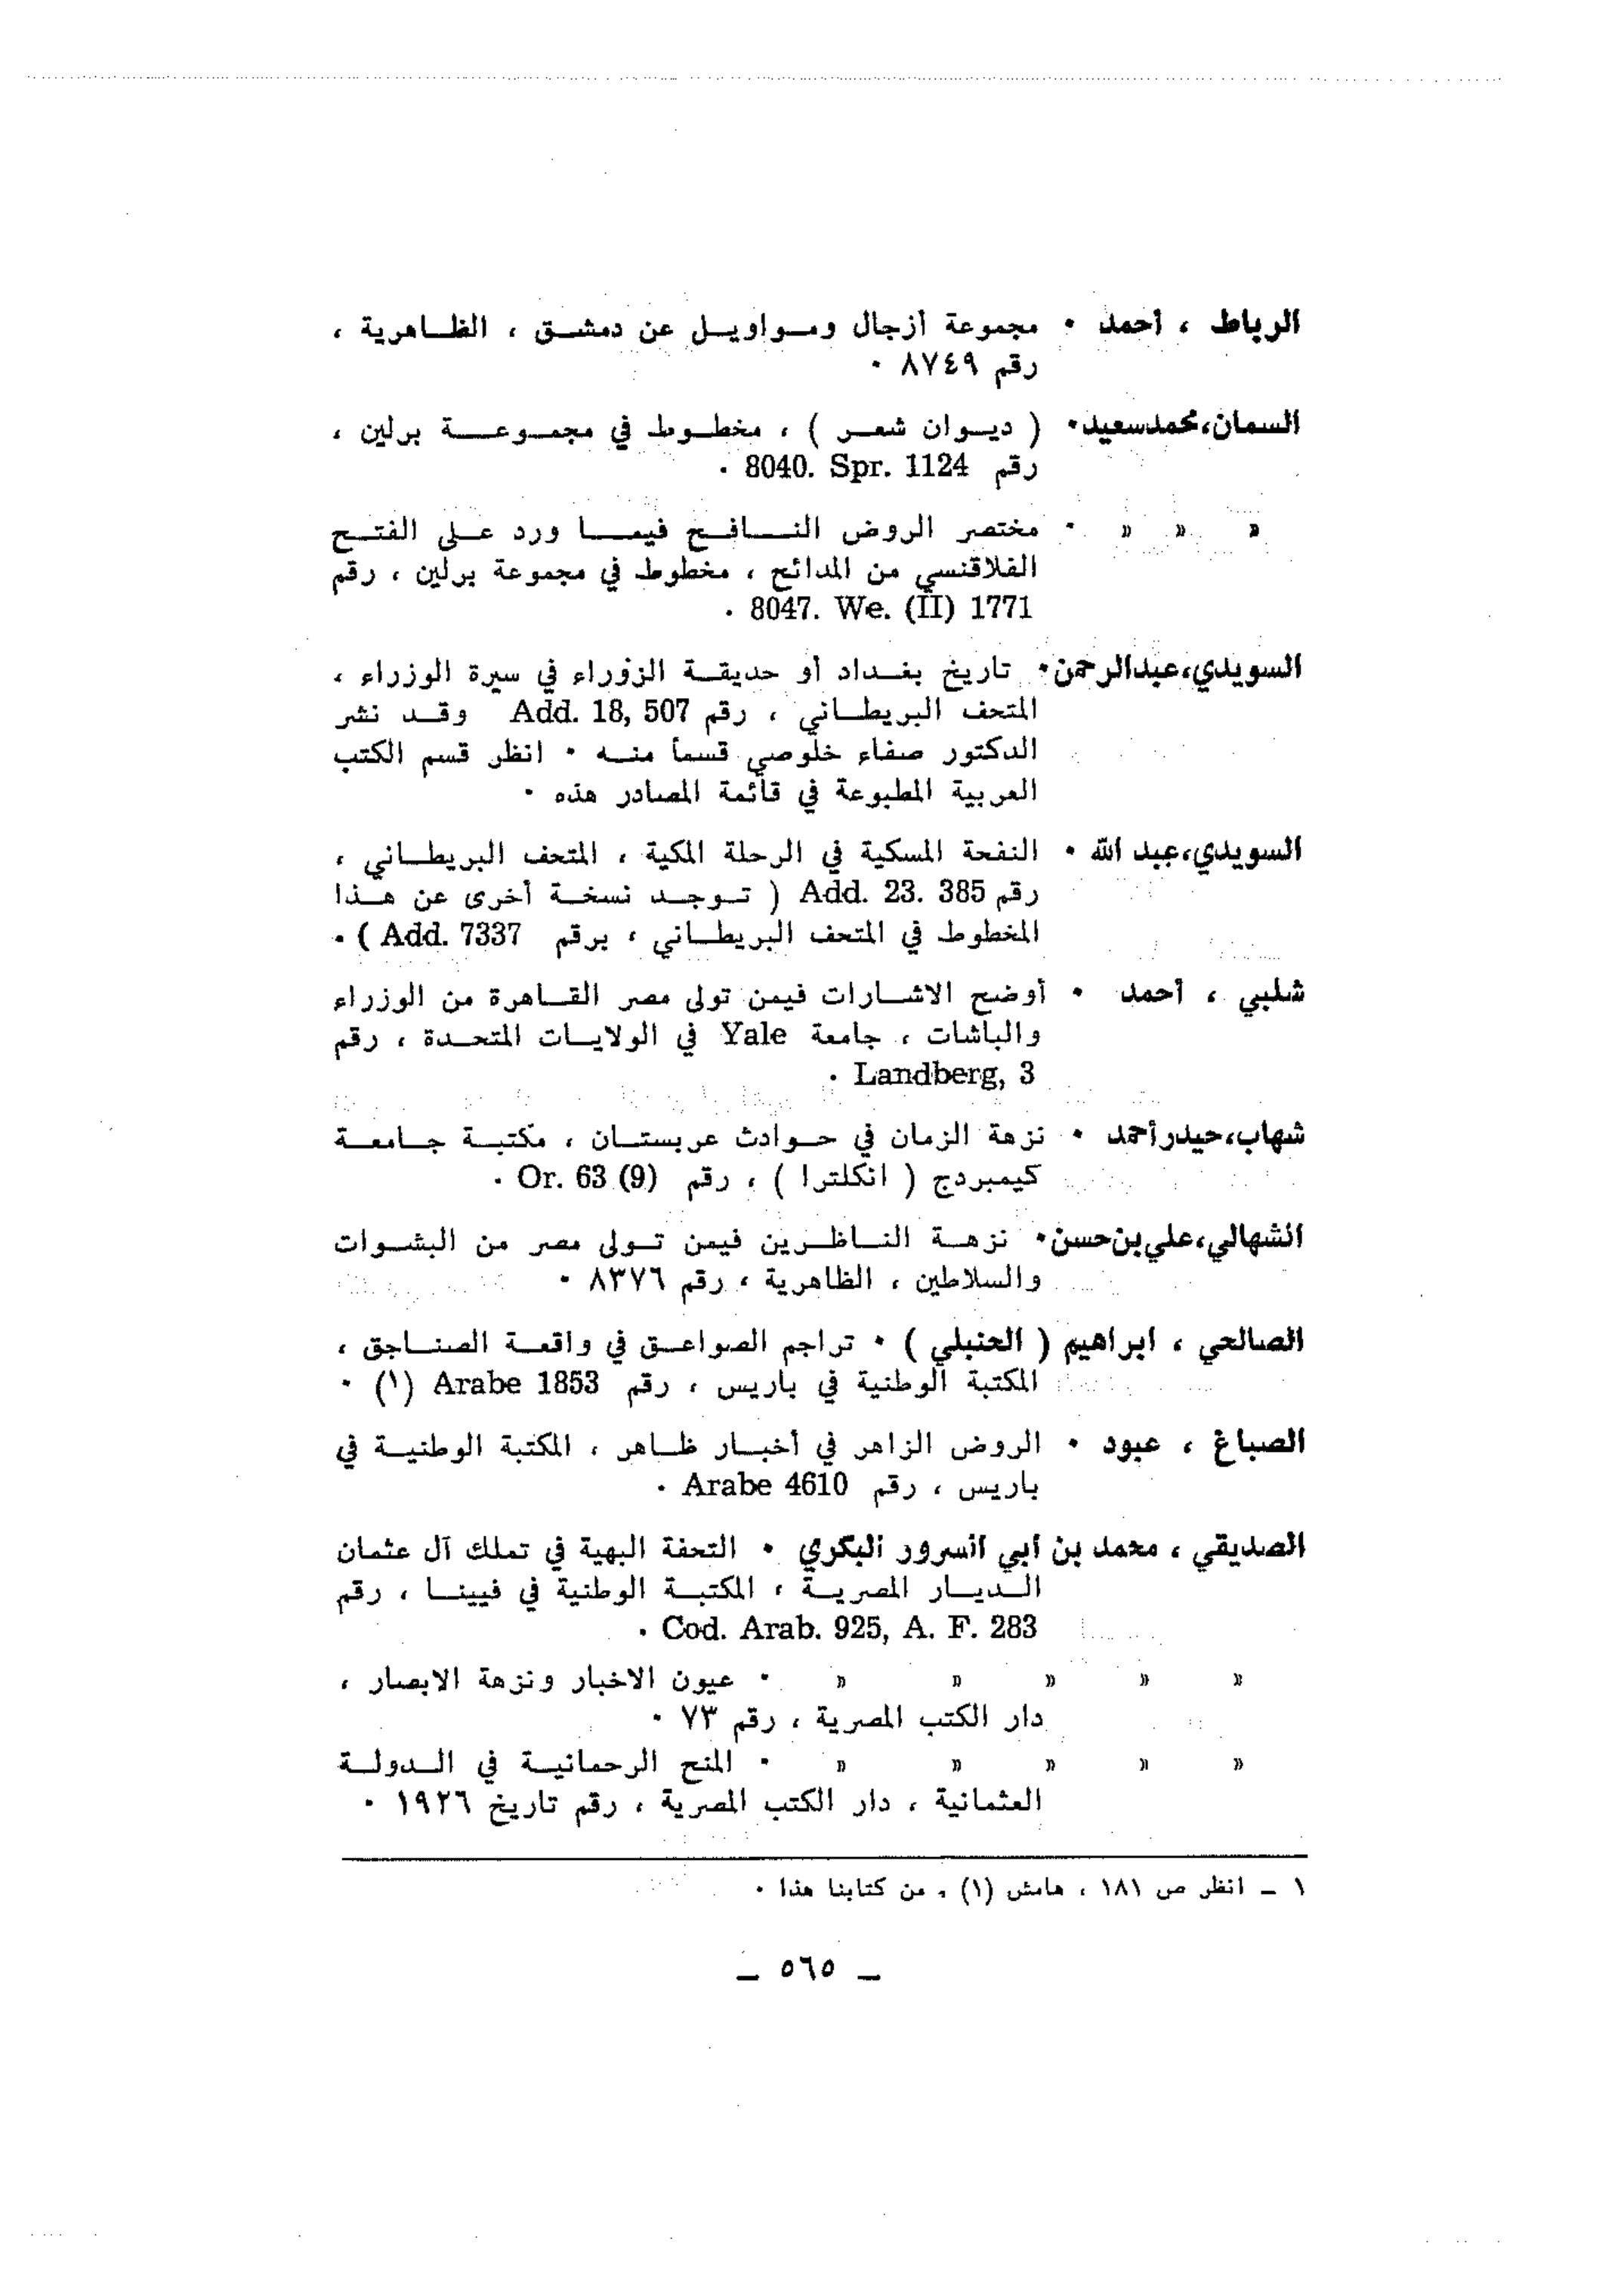 الرباط ، أحمد • مجموعة أزجال ومواويل عن دمشق ، الظاهرية ،
رقم ٨٧٤٩ •
السمان، محمد سعيد • ( ديوان شعر ) ، مخطوط في مجموعة برلين ،
رقم 8040. Spr. 1124 •
» » » • مختصر الروض النافح فيما ورد على الفتح
الفلاقنسي من المدائح ، مخطوط في مجموعة برلين ، رقم
8047. We. (II) 1771 •
السويدي، عبدالرحمن • تاريخ بغداد أو حديقة الزوراء في سيرة الوزراء ،
المتحف البريطاني ، رقم Add. 18, 507 وقد نشر
الدكتور صفاء خلوصي قسماً منه • انظر قسم الكتب
العربية المطبوعة في قائمة المصادر هذه •
السويدي، عبد الله • النفحة المسكية في الرحلة المكية ، المتحف البريطاني ،
رقم Add. 23. 385 ( توجد نسخة أخرى عن هذا
المخطوط في المتحف البريطاني ، برقم Add. 7337 ) •
شلبي ، أحمد • أوضح الاشارات فيمن تولى مصر القاهرة من الوزراء
والباشات ، جامعة Yale في الولايات المتحدة ، رقم
Landberg, 3 •
شهاب، حيدر أحمد • نزهة الزمان في حوادث عربستان ، مكتبة جامعة
كيمبردج ( انكلترا ) ، رقم Or. 63 (9) •
الشهالي، علي بن حسن • نزهة الناظرين فيمن تولى مصر من البشوات
والسلاطين ، الظاهرية ، رقم ٨٣٧٦ •
الصالحي ، ابراهيم ( الحنبلي ) • تراجم الصواعق في واقعة الصناجق ،
المكتبة الوطنية في باريس ، رقم Arabe 1853 (١) •
الصباغ ، عبود • الروض الزاهر في أخبار ظاهر ، المكتبة الوطنية في
باريس ، رقم Arabe 4610 •
الصديقي ، محمد بن أبي السرور البكري • التحفة البهية في تملك آل عثمان
الديار المصرية ، المكتبة الوطنية في فيينا ، رقم
Cod. Arab. 925, A. F. 283 •
» » » » » • عيون الاخبار ونزهة الابصار ،
دار الكتب المصرية ، رقم ٧٣ •
» » » » » • المنح الرحمانية في الدولة
العثمانية ، دار الكتب المصرية ، رقم تاريخ ١٩٢٦ •
١ – انظر ص ١٨١ ، هامش (١) ، من كتابنا هذا •
– ٥٦٥ –